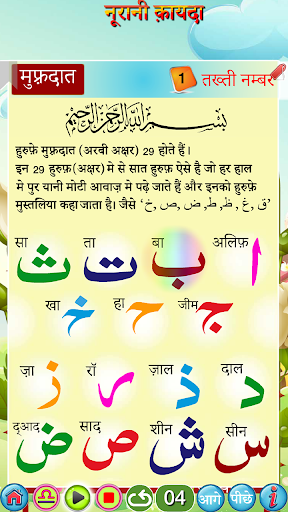 नूरानी क़ायदा
मुफ़्रदात
1 तख्ती नम्बर
بسم الله الرحمن الرحيم
हुरुफ़े मुफ़्रदात (अरबी अक्षर) 29 होते हैं ।
इन 29 हुरुफ़(अक्षर) मे से सात हुरुफ़ ऐसे है जो हर हाल
मे पुर यानी मोटी आवाज़ मे पढ़े जाते हैं और इनको हुरुफ़े
मुस्तलिया कहा जाता है। जैसे ’ق , غ , ظ , ط , ض , ص , خ‘
सा ता बा अलिफ़
ث ت ب ا
खा हा जीम
خ ح ج
ज़ा रॉ ज़ाल दाल
ز ر ذ د
द्आद साद शीन सीन
ض ص ش س
04 आगे पीछे i